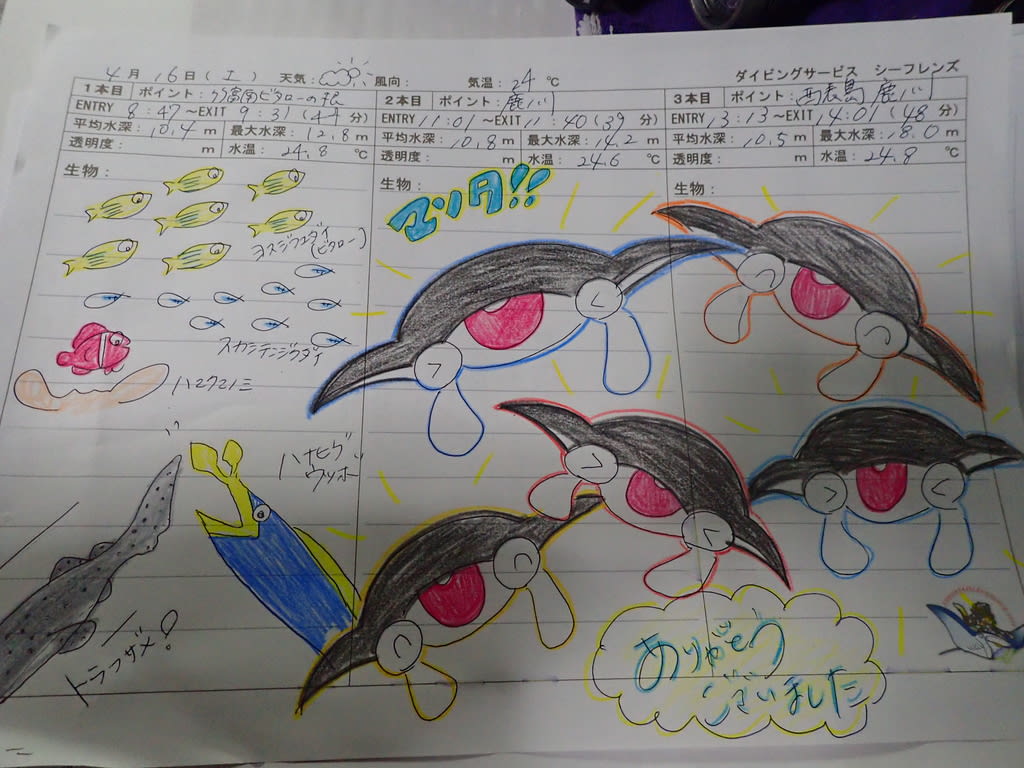 4月 16日(土) 天気: 風向: 気温: 24 ℃ ダイビングサービス シーフレンズ
1本目 ポイント: 富南ビタローの根
ENTRY 8:47~EXIT 9:31(44分)
平均水深: 10.4 m 最大水深: 12.8 m
透明度: m 水温: 24.8 ℃
生物:
ヨスジフエダイ
(ビタロー)
スカシテンジクダイ
ハマクマノミ
ハナヒゲ
ウツボ
トラフザメ!
2本目 ポイント: 鹿川
ENTRY 11:01~EXIT 11:40(39分)
平均水深: 10.8 m 最大水深: 14.2 m
透明度: m 水温: 24.6 ℃
生物:
マンタ!!
3本目 ポイント: 西表島 鹿川
ENTRY 13:13~EXIT 14:01(48分)
平均水深: 10.5 m 最大水深: 18.0 m
透明度: m 水温: 24.8 ℃
生物:
ありがとう
ございました